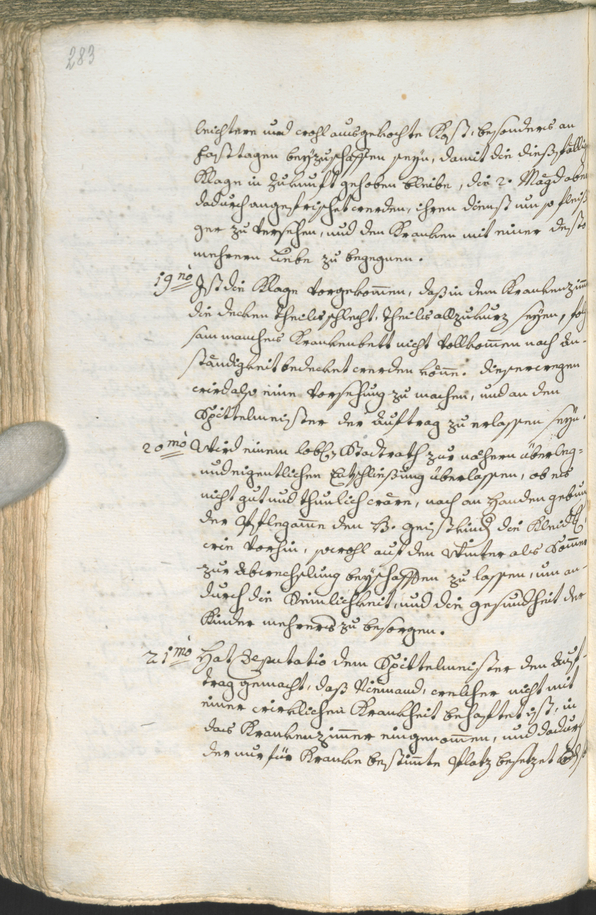 283
leichtere und wohl ausgekochte Kost, besonders an
Fasttagen beyzuschaffen seyn, damit die dießfällige
Klage in Zukunft gehoben bleibe, die 2. Mägd aber
dadurch angefrischet werden, ihren Dienst um so fleißi
ger zu versehen, und den Kranken mit einer desto
mehrern Liebe zu begegnen.
19no Ist die Klage vorgekommen, daß in dem Krankenzim
die decken theils schlecht, theils allzukurz seyen, folg
sam manches Krankenbett nicht vollkommen nach An-
ständigkeit bedecket werden könne. Dieserwegen
wird also eine Vorsehung zu machen, und an den
Spittelmeister der Auftrag zu erlassen seyn.
20mo Wird einem lobl. Stadtrath zur nähern überleg-
und eigentlichen Entschließung überlassen, ob es
nicht gut und thunlich wäre, nach an Handen gebung
der Pflegamme den H. geistkind die Kleider
wie vorhin, sowohl auf den Winter als Sommer
zur Abwechslung beyschaffen zu lassen, um an-
durch die Reinlichkeit, und die gesundheit der
Kinder mehrers zu besorgen.
21mo Hat Deputatio dem Spittelmeister den Auf-
trag gemacht, daß Niemand, welcher nicht mit
einer wirklichen Krankheit behaftet ist, in
das Krankenzimmer eingenommen, und dadurch
der nur für Kranke bestimmte Platz besetzet